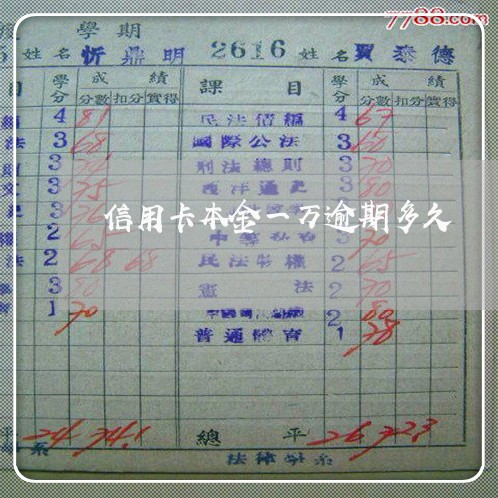 7788.com
學期
姓名 忻鼎明 2616 姓名 賈泰德
目 學分 成績 課目 學分 成績
分數 扣分 實得 分數 扣分 實得
4 81 民法債編 4 67
法 3 68 國際公法 3 60
3 刑法總則 3 70
3 75 西洋通史 3 80
3
信用卡本金一万逾期多久
2 65 70
法 2 68 68 民法物權 2 65
3 80 憲法 2 70
1 70 2 80
普通體育 1 78
平 24 74.1 總平 26 72.3
系 法律學系